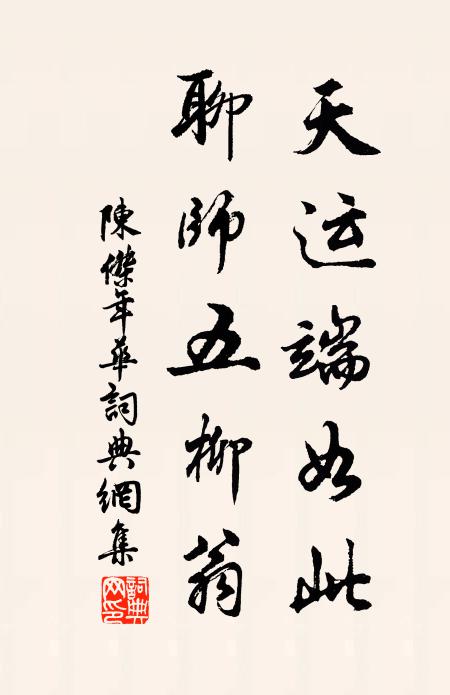 天运端如此
聊师五柳翁
陳傑年華詞典網集
詞典网印